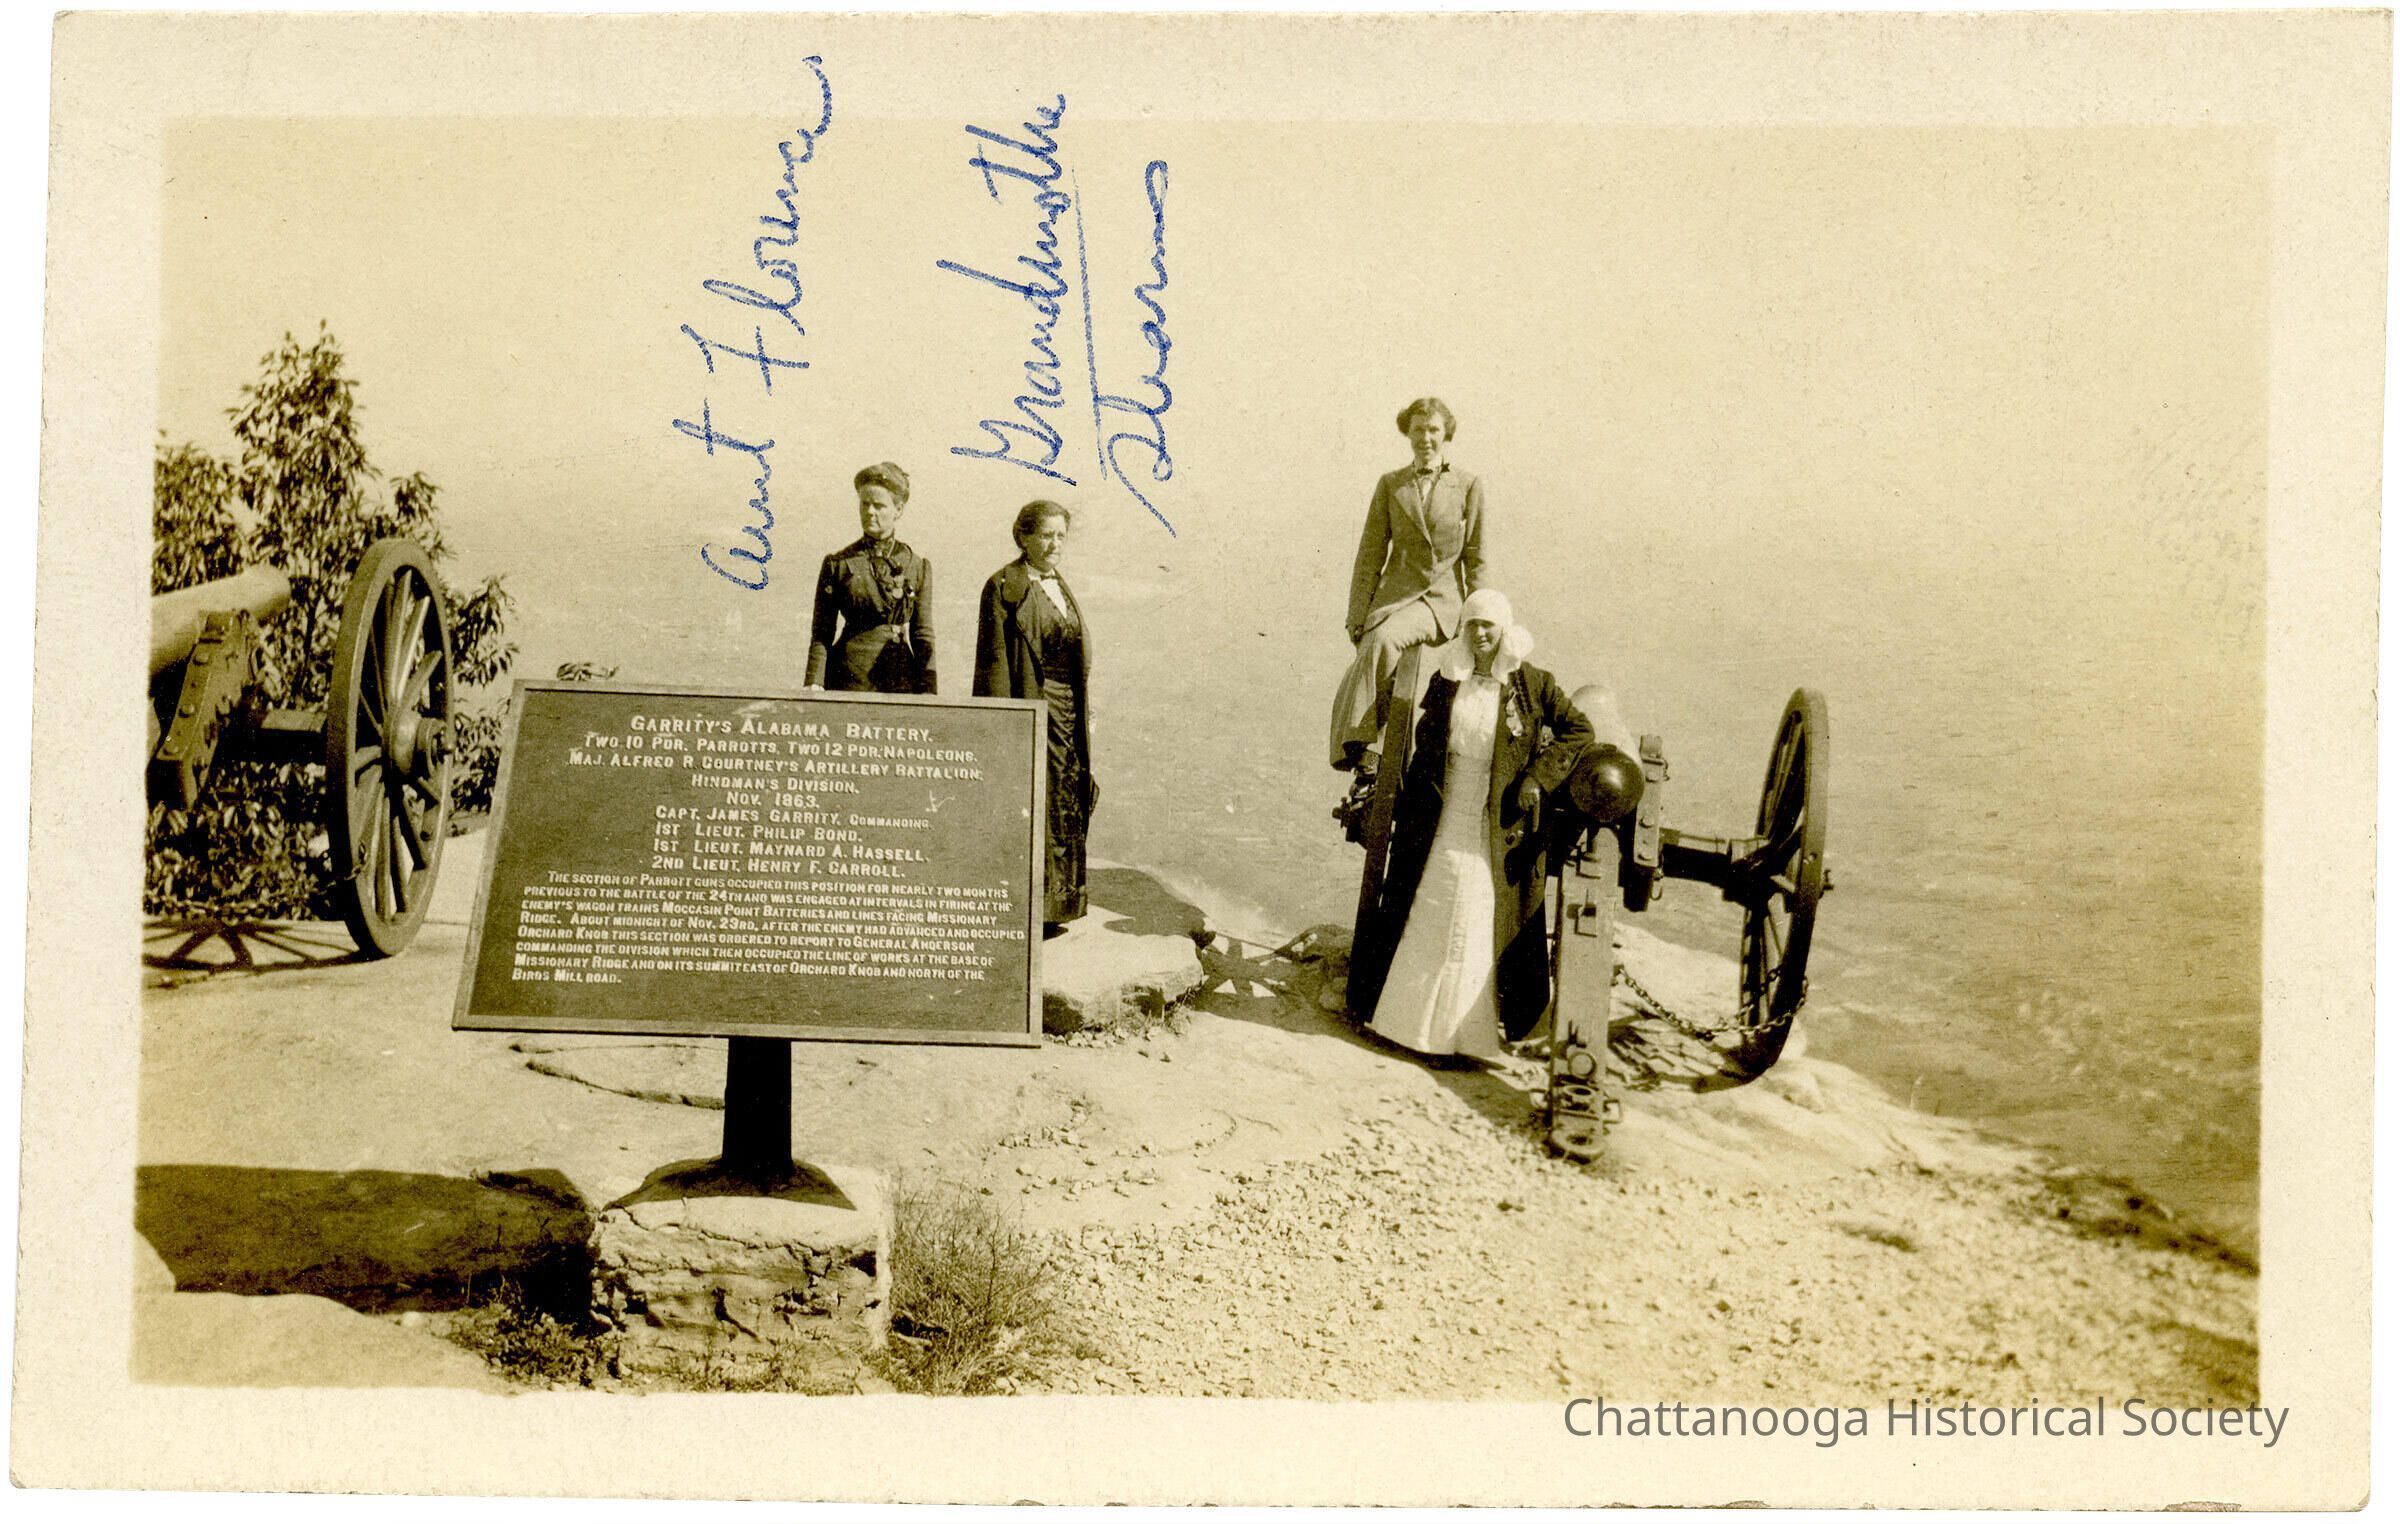 Aunt Florence
Grandmothe
Stearns
GARRITY'S ALABAMA BATTERY.
TWO 10 PDR. PARROTTS, TWO 12 PDR. NAPOLEONS.
MAJ. ALFRED R. COURTNEY'S ARTILLERY BATTALION.
HINDMAN'S DIVISION.
NOV. 1863.
CAPT. JAMES GARRITY, COMMANDING.
1ST LIEUT. PHILIP BOND.
1ST LIEUT. MAYNARD A. HASSELL.
2ND LIEUT. HENRY F. CARROLL.
THE SECTION OF PARROTT GUNS OCCUPIED THIS POSITION FOR NEARLY TWO MONTHS
PREVIOUS TO THE BATTLE OF THE 24TH AND WAS ENGAGED AT INTERVALS IN FIRING AT THE
ENEMY'S WAGON TRAINS MOCCASIN POINT BATTERIES AND LINES FACING MISSIONARY
RIDGE. ABOUT MIDNIGHT OF NOV. 23RD, AFTER THE ENEMY HAD ADVANCED AND OCCUPIED
ORCHARD KNOB THIS SECTION WAS ORDERED TO REPORT TO GENERAL ANDERSON
COMMANDING THE DIVISION WHICH THEN OCCUPIED THE LINE OF WORKS AT THE BASE OF
MISSIONARY RIDGE AND ON ITS SUMMIT EAST OF ORCHARD KNOB AND NORTH OF THE
BIRDS MILL ROAD.
Chattanooga Historical Society